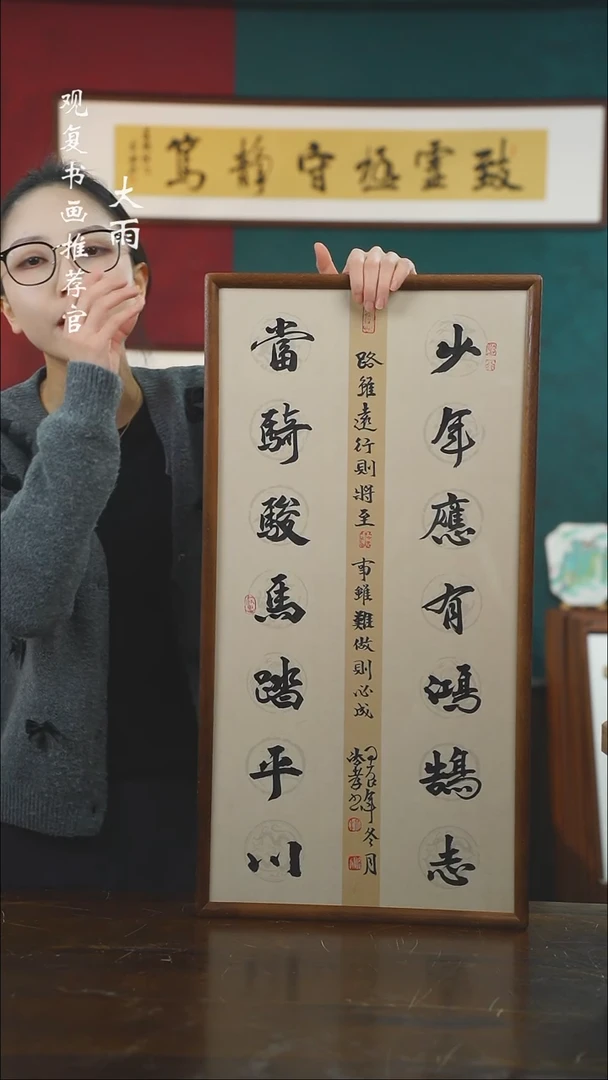 观复书画推荐官
大雨
致虚极守静笃
少年应有鸿鹄志
當騎駿馬踏平川
路雖遠行則將至
事雖難做則必成
甲辰年冬月